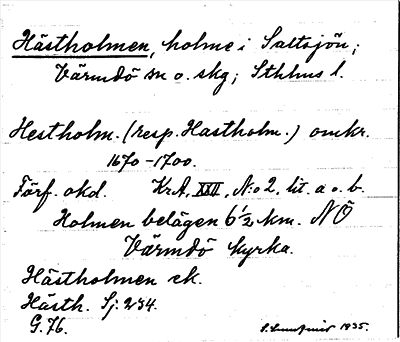 Hästholmen, holme i Saltsjön;
Värmdö sn o. skg; Sthlms l.
Hestholm. (resp. Hastholm.) omkr.
1670-1700.
Förf. okd. Kr.A, XXII, N:o 2, lit. a o. b.
Holmen belägen 6 1/2 km. NÖ
Värmdö kyrka.
Hästholmen ek.
Hästh. Sj. 234.
G. 76.
1935.